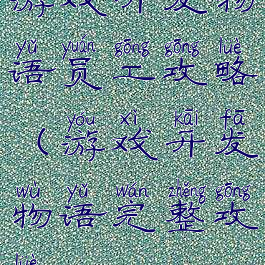 游戏开发物
yǔ yuán gōng gōng lüè
语员工攻略
yóu xì kāi fā
（游戏开发
wù yǔ wán zhěng gōng
物语完整攻
lüè